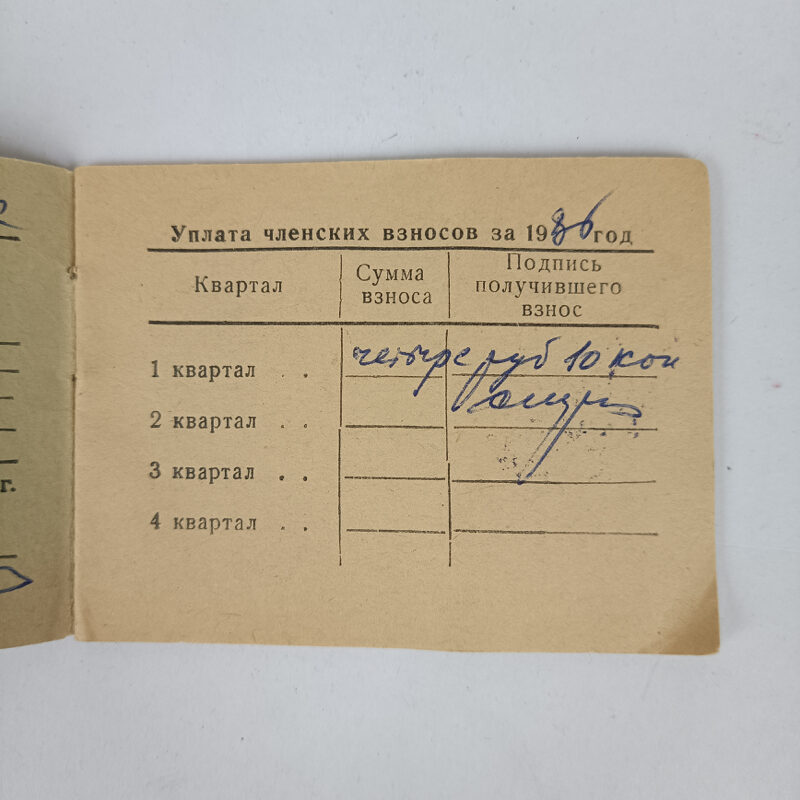 Уплата членских взносов за 1986 год
Квартал
Сумма взноса
Подпись получившего взнос
1 квартал . .
четыре руб 10 коп
2 квартал . .
3 квартал . .
4 квартал . .
г.